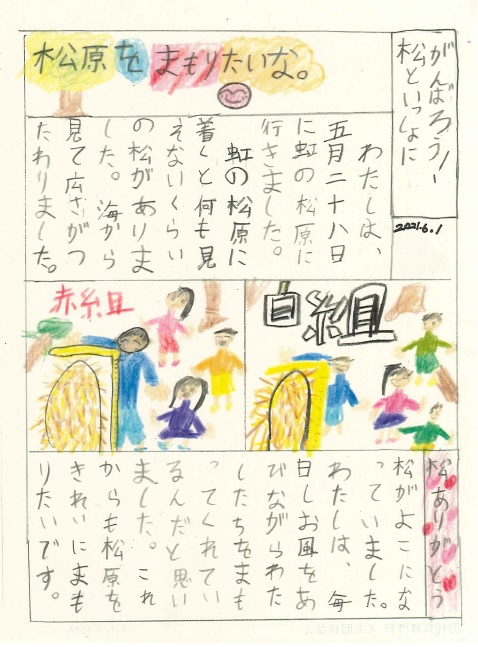 がんばろう!
松といっしょに
2021.6.1
松原をまもりたいな。
わたしは、
五月二十八日
に虹の松原に
行きました。
虹の松原に
着くと何も見
えないくらい
の松がありま
した。海から
見て広さがつ
たわりました。
白組
赤組
松ありがとう
松がよこにな
っていました。
わたしは、毎
日しお風をあ
びながらわた
したちをまも
ってくれてい
るんだと思い
ました。これ
からも松原を
きれいにまも
りたいです。